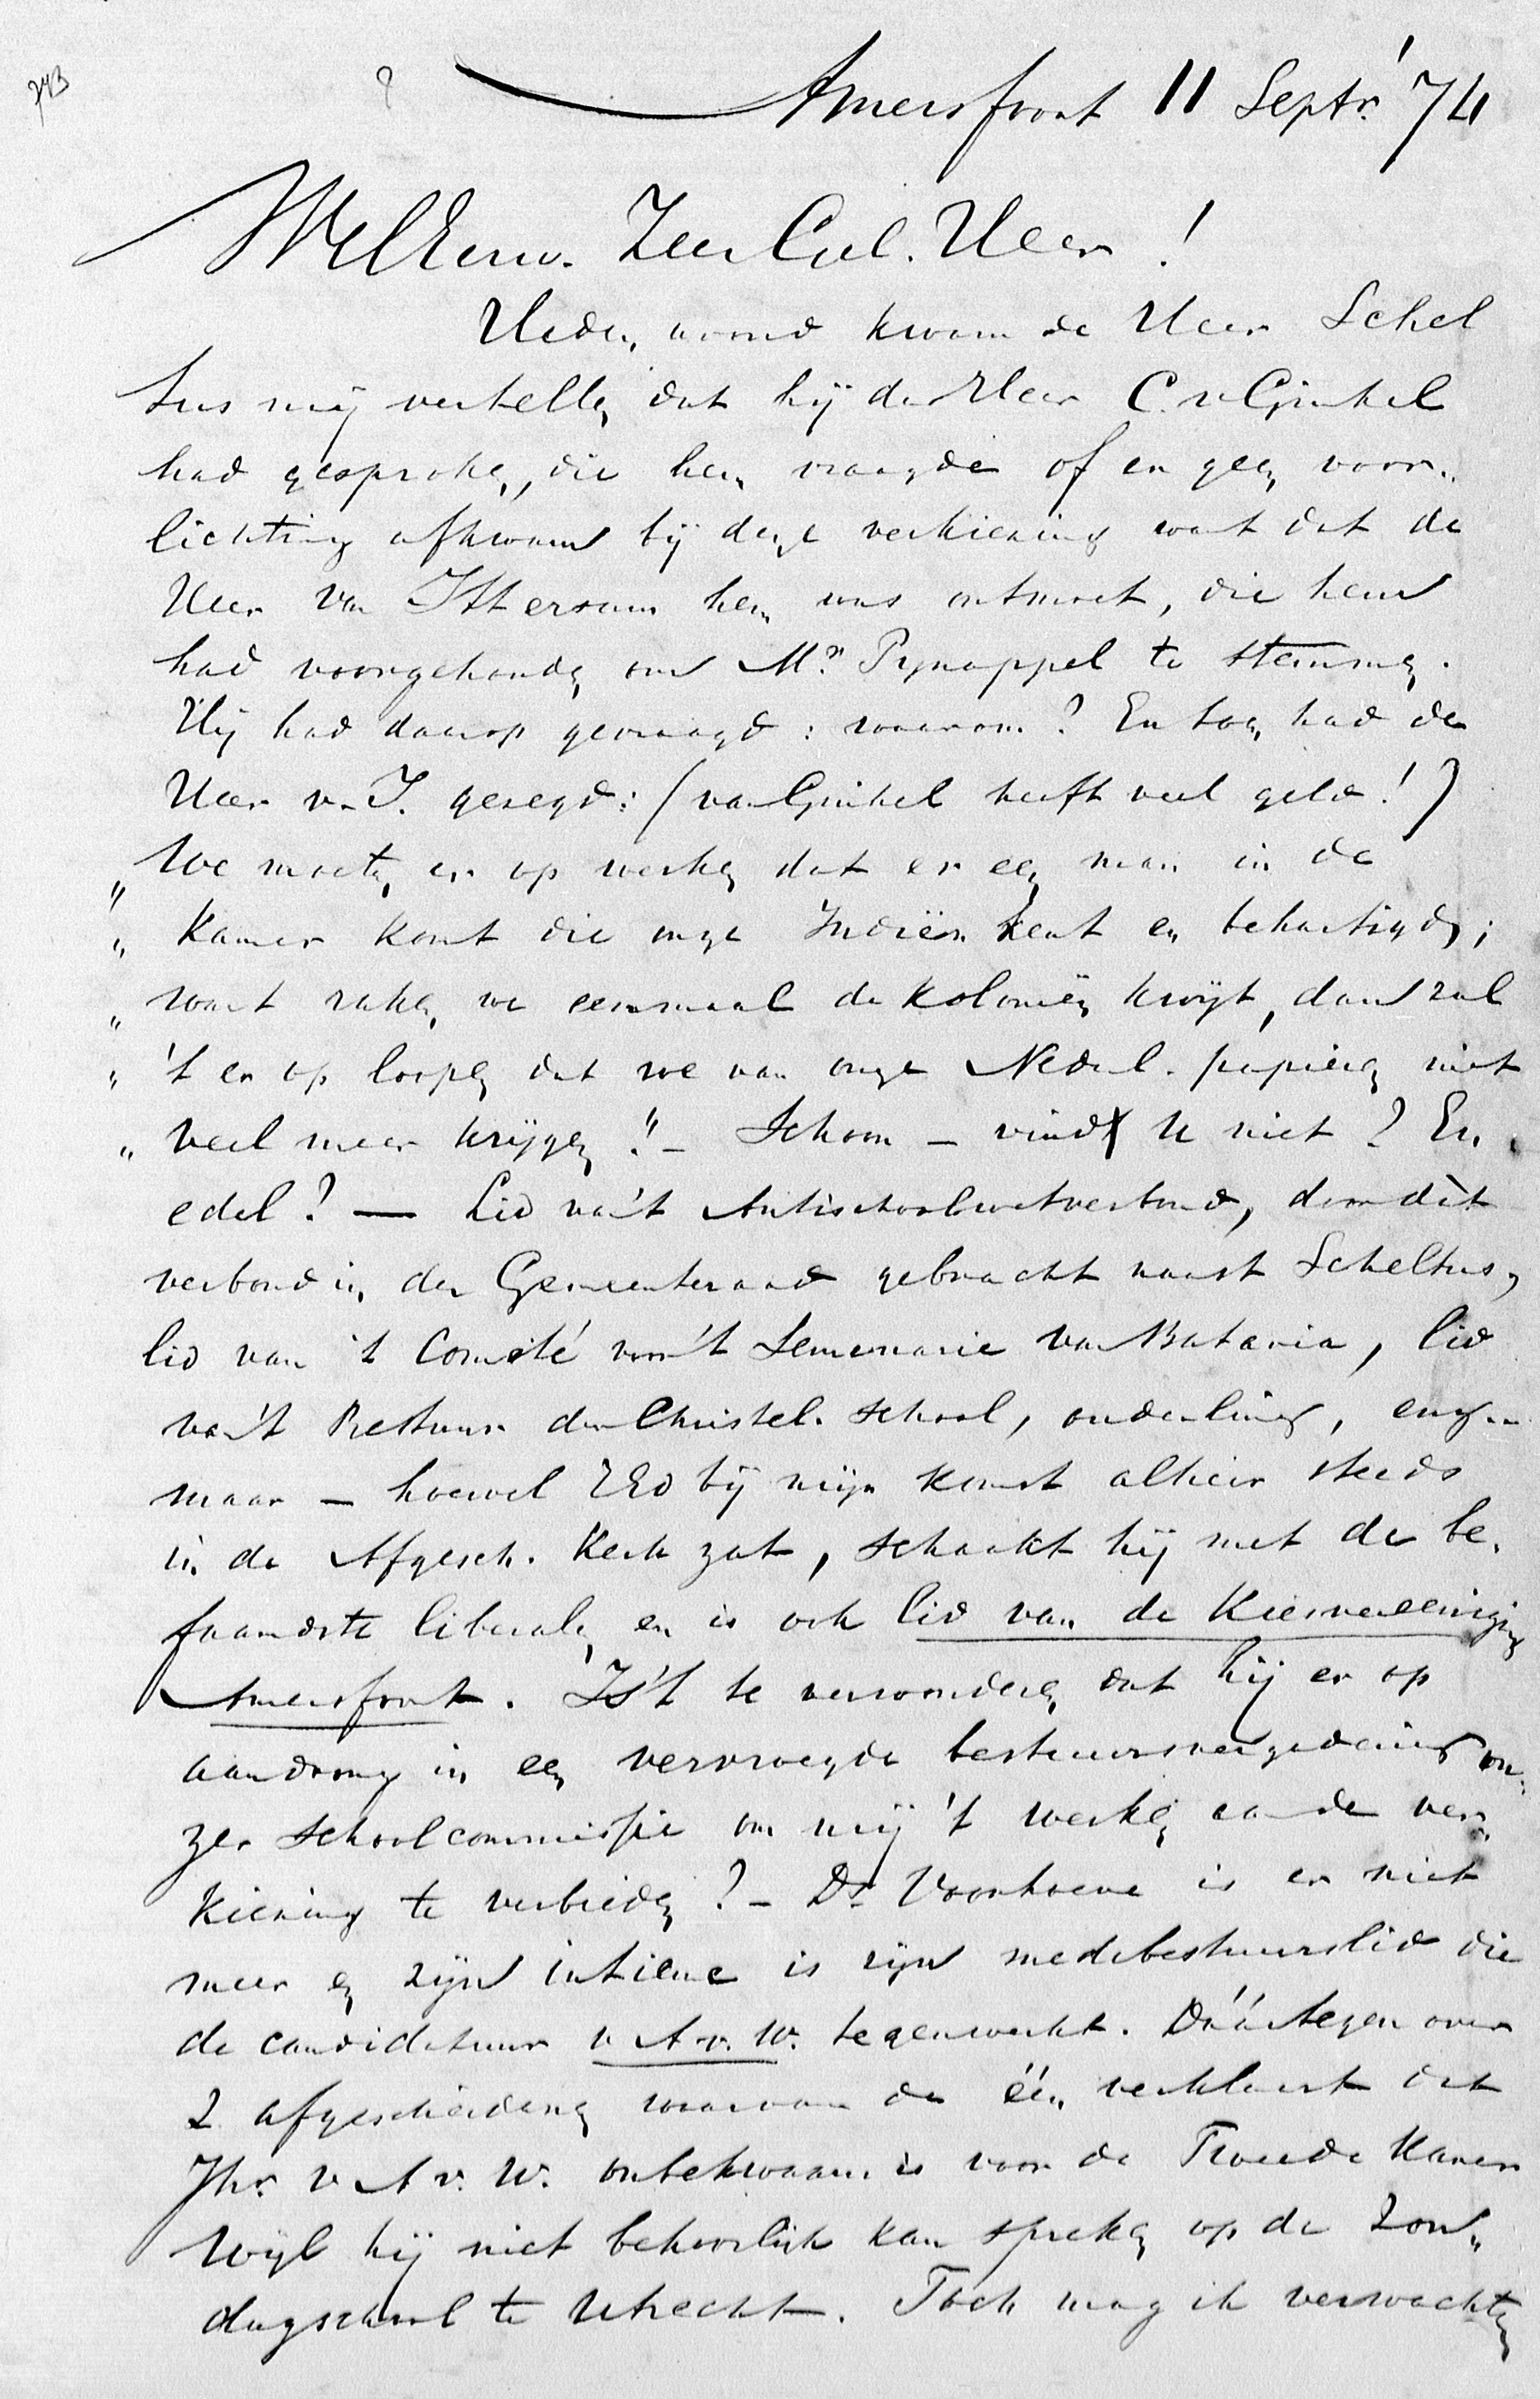 743
?
Amersfoort 11 Septr. '74
WelEerw. Zeer Gel. Heer!
Heden avond kwam de Heer Schel
tus mij vertellen dat hij den Heer C. v Ginkel
had gesproken, die hem vraagde of er geen voor„
lichting afkwam bij deze verkiezing want dat de
Heer van Ittersum hem was ontmoet, die hem
had voorgehouden om Mr. Pynappel te stemmen.
Hij had daarop gevraagd: waarom? En toen had de
Heer v. I. gezegd: (van Ginkel heeft veel geld!)
„ We moeten er op werken dat er een man in de
„ Kamer komt die onze Indiën kent en behartigd;
„ want raken we eenmaal de Koloniën kwijt, dan zal
„ 't er op loopen dat we van onze Nederl. papieren niet
„ veel meer krijgen!" – Schoon – vindt U niet? En
edel? — Lid va't Antischoolwetverbond, door dit
verbond in den Gemeenteraad gebracht naast Scheltus,
lid van 't Comité voor 't Semenarie van Batavia, lid
va't Bestuur der Christel. school, ouderling, enz...
maar – hoewel ZEd bij mijn komst alhier steeds
in de Afgesch. Kerk zat, schaakt hij met de be„
faamdste liberalen en is ook lid van de Kiesvereeniging
Amersfoort. Is't te verwonderen dat hij er op
aandrong in een vervroegde bestuursvergadering on„
zer schoolcommissie om mij 't werken aan de ver„
kiezing te verbieden? – Ds Voorhoeve is er niet
meer en zijn intieme is zijn medebestuurslid die
de candidatuur v A. v. W. tegenwerkt. Dáártegenover
2 afgescheidenen waarvan de één verklaart dat
Jhr. v A v. W. onbekwaam is voor de Tweede Kamer
wijl hij niet behoorlijk kan spreken op de Zon„
dagschool te Utrecht. Toch mag ik verwachten